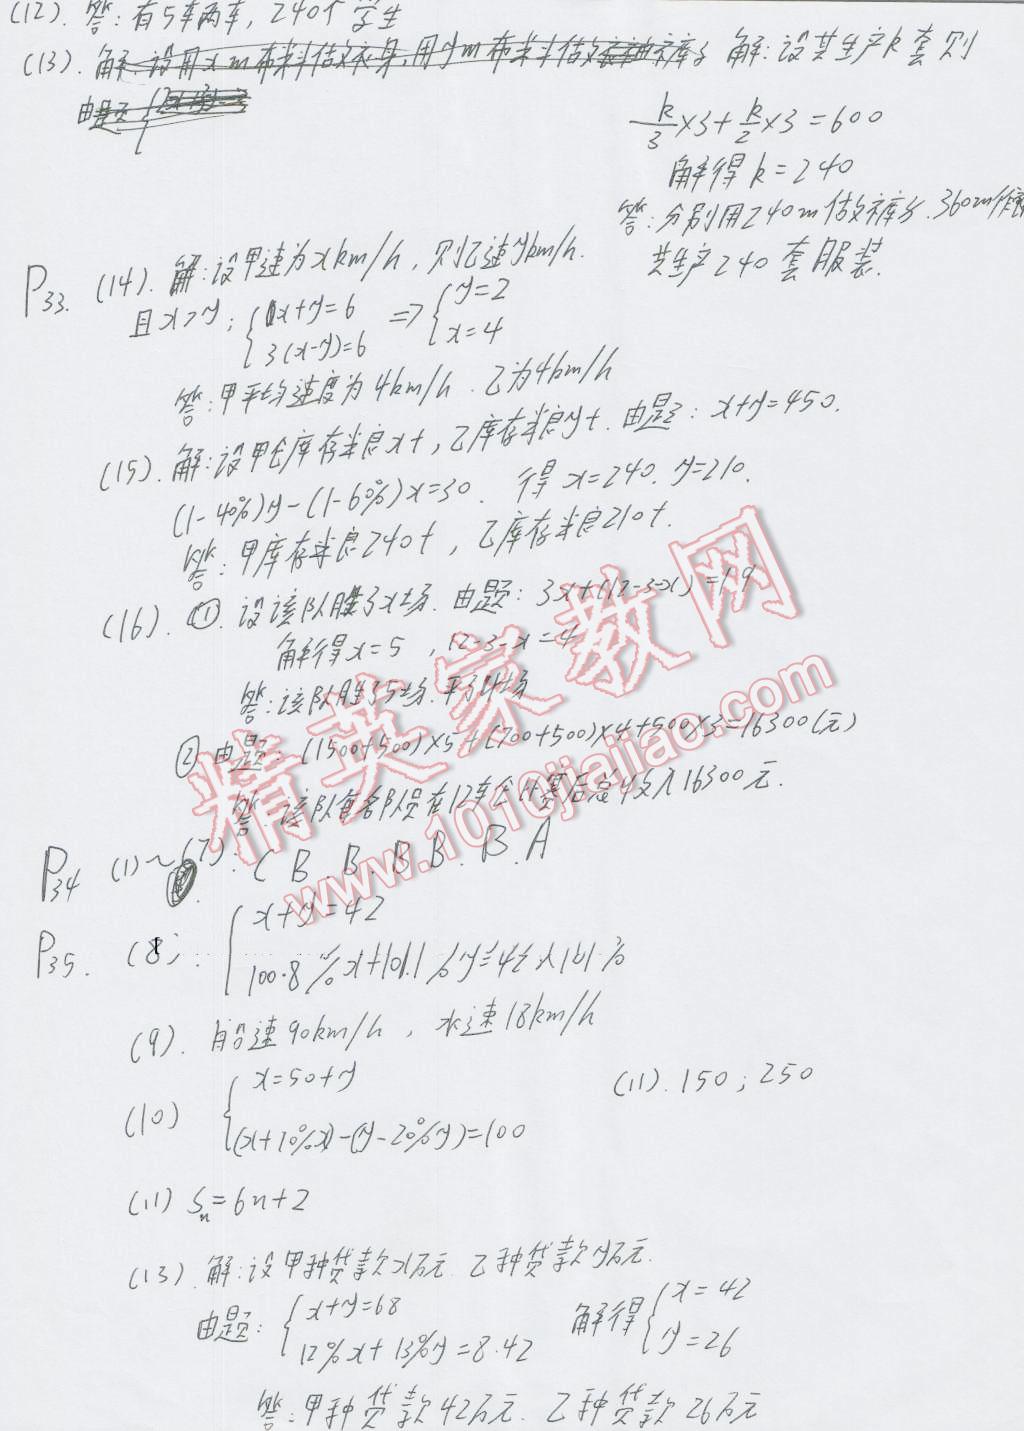 (12). 答: 有5车两车, 240个学生
(13). 解: 设用xm布料做衣身, 用ym布料做衣袖裤子 解: 设共生产k套则
由题
k/3×3+k/2×3=600
解得k=240
答: 分别用240m做裤子. 360m作
共生产240套服装.
P33. (14). 解: 设甲速为xkm/h, 则乙速ykm/h.
且x>y; {x+y=6 => {y=2
3(x-y)=6 x=4
答: 甲平均速度为4km/h. 乙为4km/h
(15). 解: 设甲仓库存粮xt, 乙库存粮yt. 由题: x+y=450.
(1-40%)y-(1-60%)x=30. 得x=240. y=210.
答: 甲库存粮240t, 乙库存粮210t.
(16). ①. 设该队胜了x场. 由题: 3x+(12-3-x)=19
解得x=5, 12-3-x=4
答: 该队胜了5场. 平了4场
② 由题: (1500+500)×5+(700+500)×4+500×3=16300(元)
答: 该队每名队员在12车全计赛后总收入16300元.
精英家教网
www.1010jiajiao.com
P34 (1)~(7): C B. B. B B. B. A
P35. (8): {x+y=42
100.8%x+101.1%y=42×101%
(9). 船速90km/h, 水速18km/h
(10) {x=50+y (11). 150; 250
(x+10%x)-(y-20%y)=100
(11) Sn=6n+2
(13). 解: 设甲种贷款x万元. 乙种贷款y万元.
由题: {x+y=68 解得{x=42
12%x+13%y=8.42 y=26
答: 甲种贷款42万元. 乙种贷款26万元